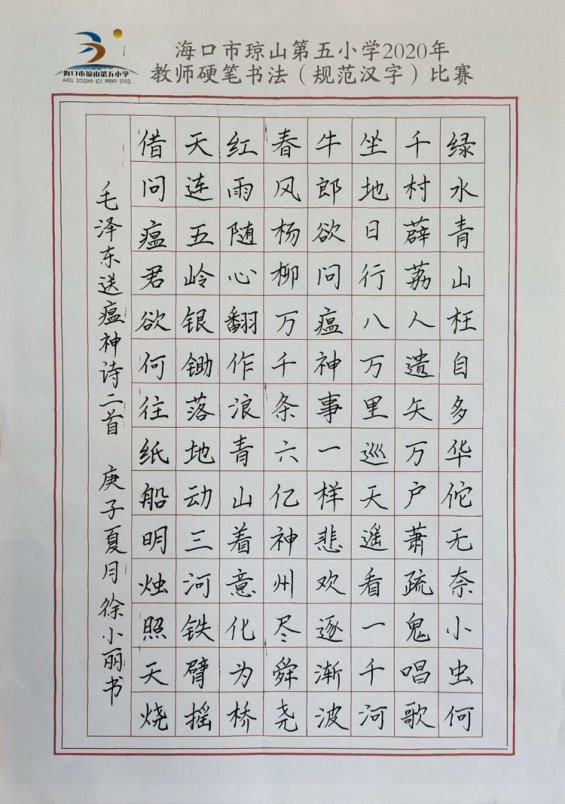 海口市琼山第五小学2020年
教师硬笔书法（规范汉字）比赛
海口市琼山第五小学
HAIKOU QIONGSHAN NO.5 PRIMARY SCHOOL
绿水青山枉自多华佗无奈小虫何
千村薜荔人遗矢万户萧疏鬼唱歌
坐地日行八万里巡天遥看一千河
牛郎欲问瘟神事一样悲欢逐渐波
春风杨柳万千条六亿神州尽舜尧
红雨随心翻作浪青山着意化为桥
天连五岭银锄落地动三河铁臂摇
借问瘟君欲何往纸船明烛照天烧
毛泽东送瘟神诗二首 庚子夏月徐小丽书